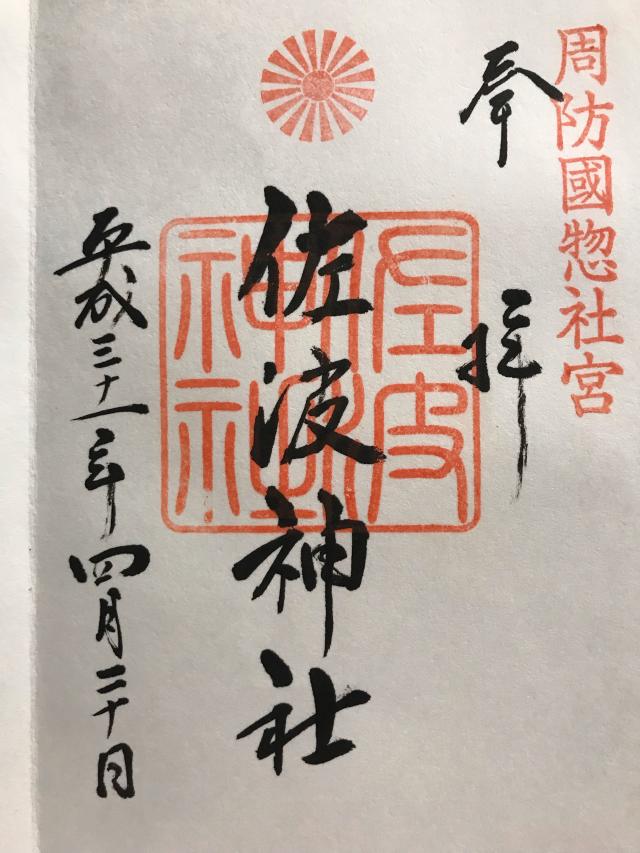 周防國惣社宮
奉拝
佐波神社
佐波神社
平成三十一年四月二十日